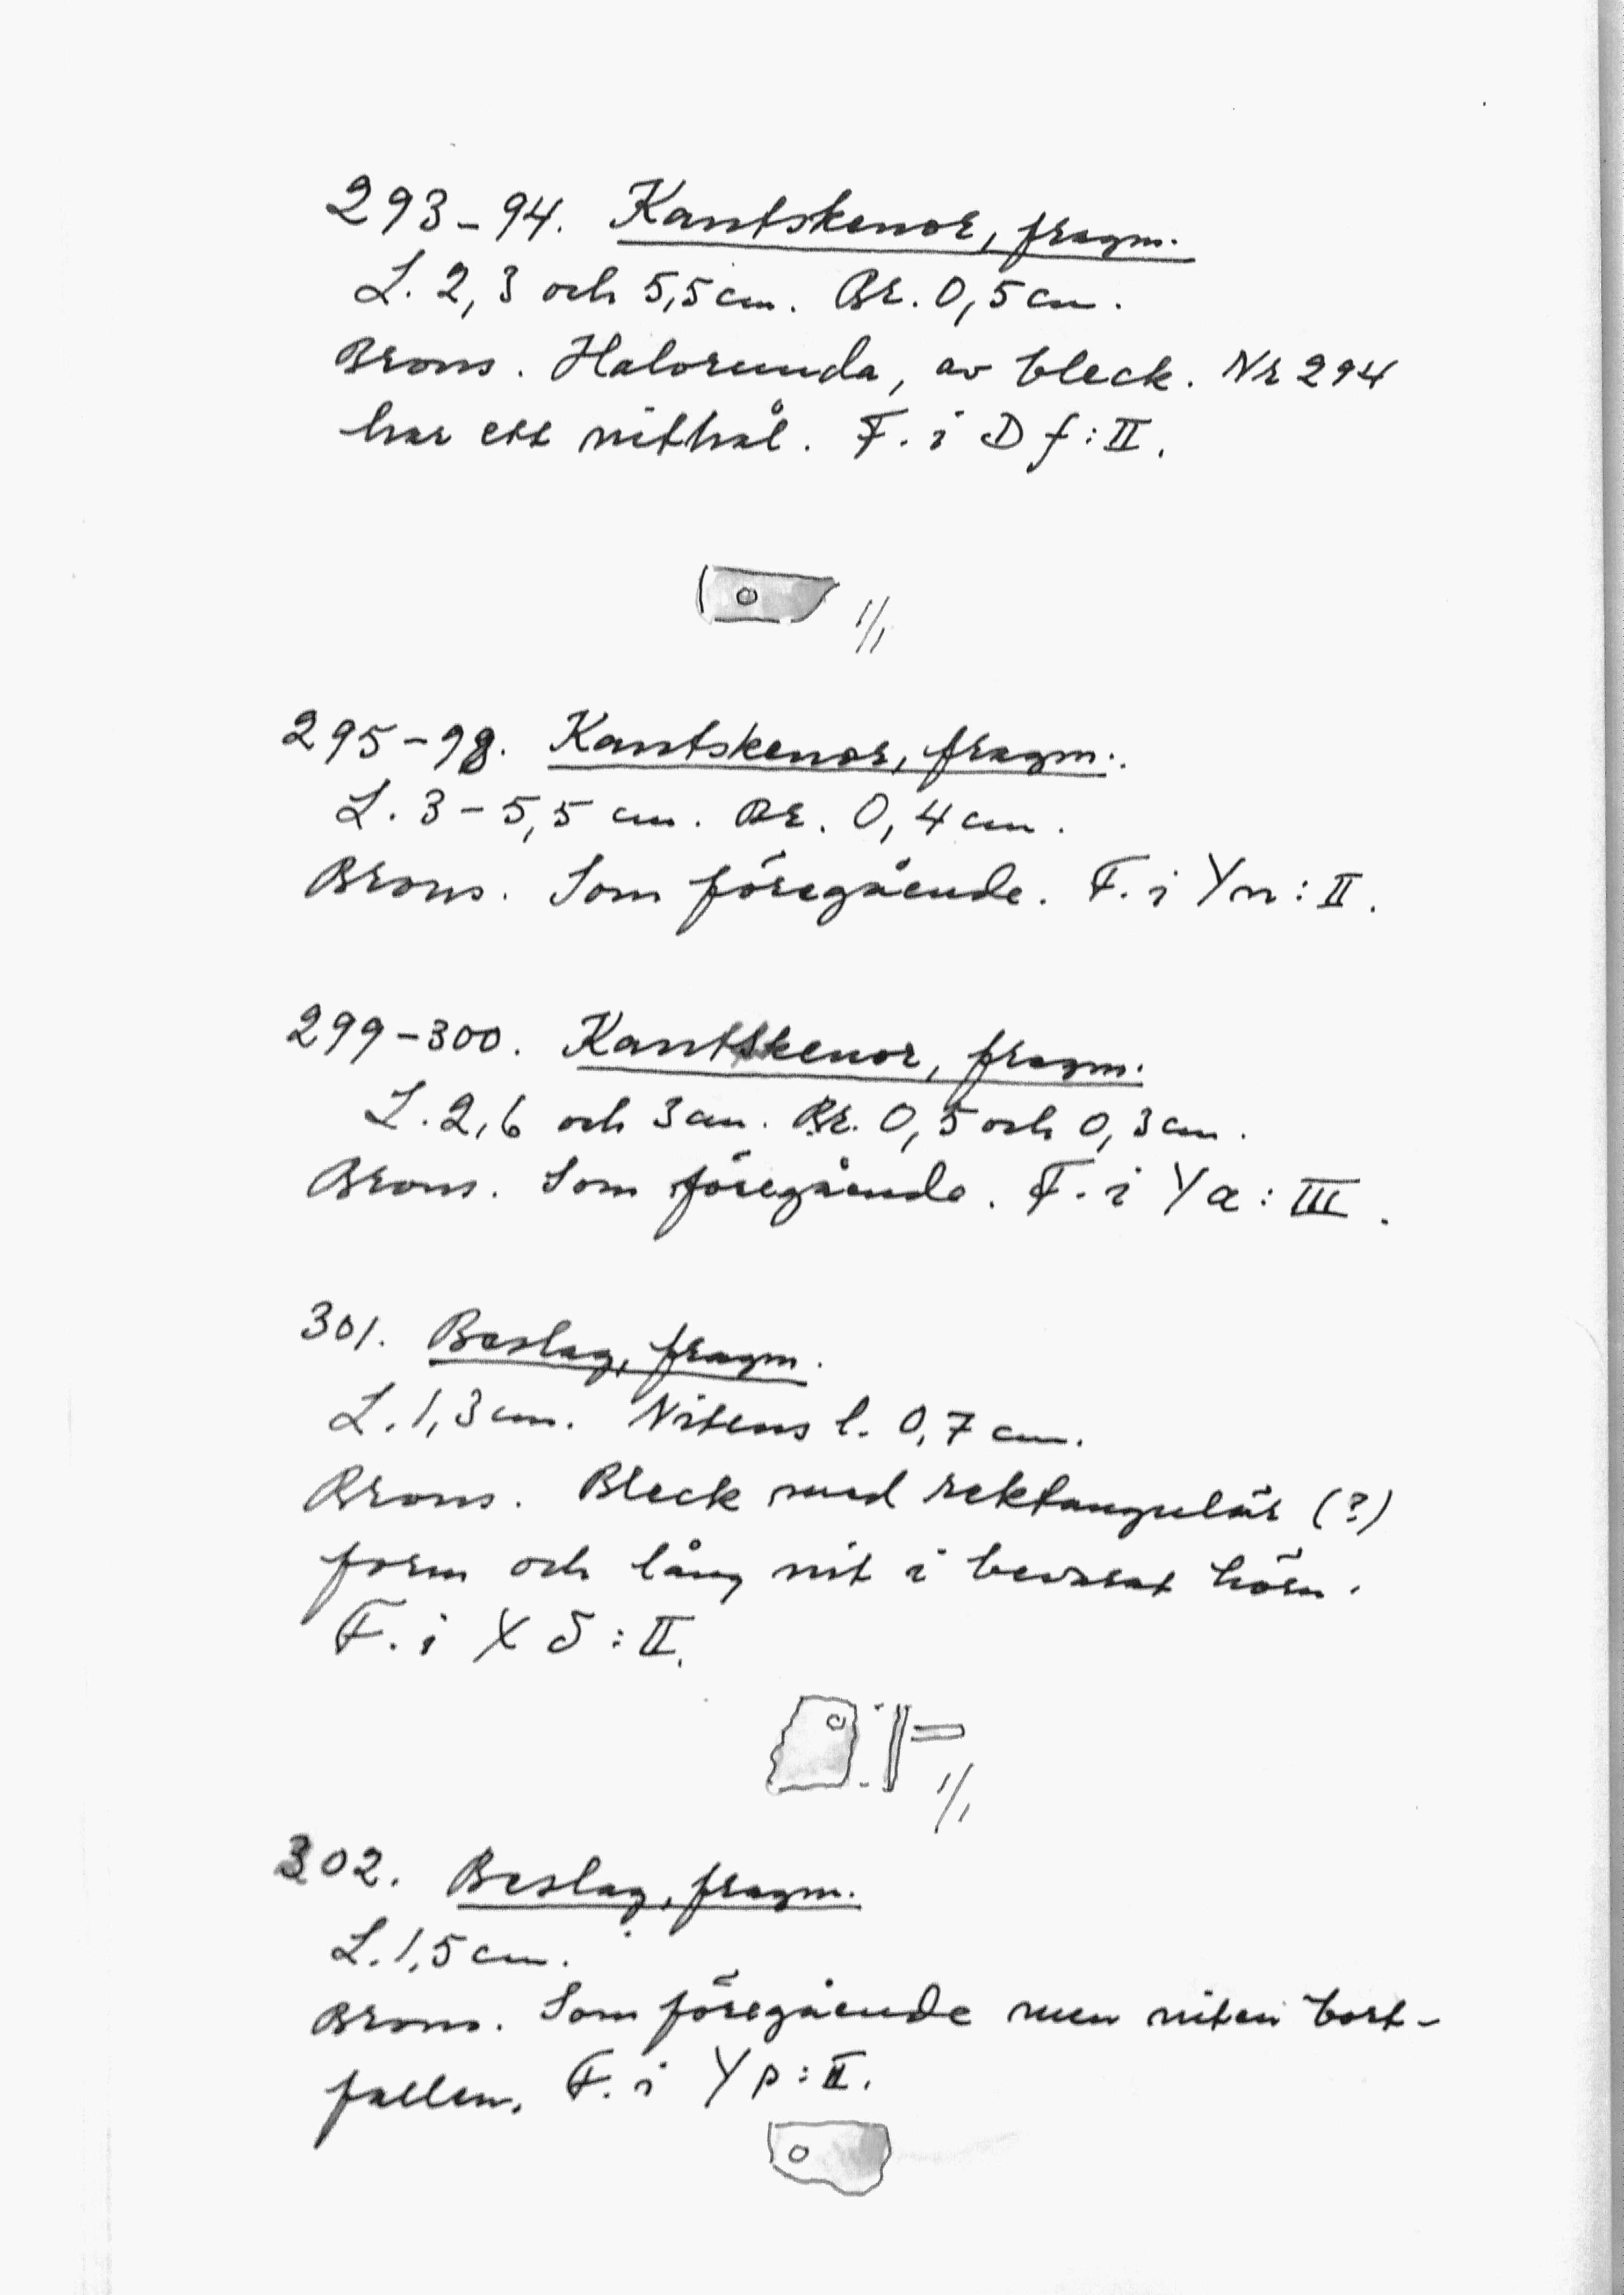 293-94. Kantskenor, fragm.
L. 2,3 och 5,5 cm. Br. 0,5 cm.
Brons. Halvrunda, av bleck. Nr 294
har ett nithål. F. i D f:II.
1/1
295-98. Kantskenor, fragm.
L. 3-5,5 cm. Br. 0,4 cm.
Brons. Som föregående. F. i Yn:II.
299-300. Kantskenor, fragm.
L. 2,6 och 3 cm. Br. 0,5 och 0,3 cm.
Brons. Som föregående. F. i Y æ:III.
301. Beslag, fragm.
L. 1,3 cm. Nitens l. 0,7 cm.
Brons. Bleck med rektangulär (?)
form och lång nit i bevarat hörn.
F. i X δ:II.
1/1
302. Beslag, fragm.
L. 1,5 cm.
Brons. Som föregående men niten bort-
fallen. F. i Y p:II.